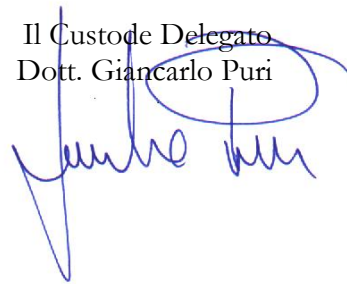 Il Custode Delegato
Dott. Giancarlo Puri